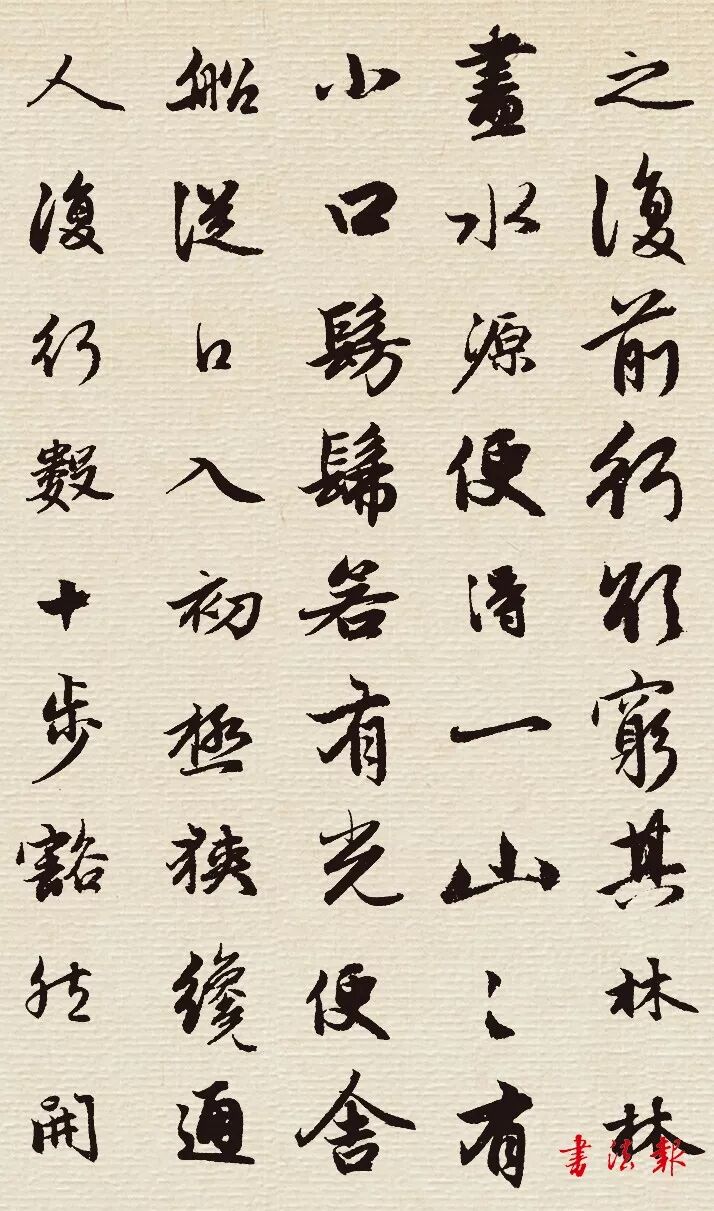 之復前行欲窮其林林
盡水源便得一山〻有
小口髣髴若有光便舍
船從口入初極狹纔通
人復行數十步豁然開
書法報